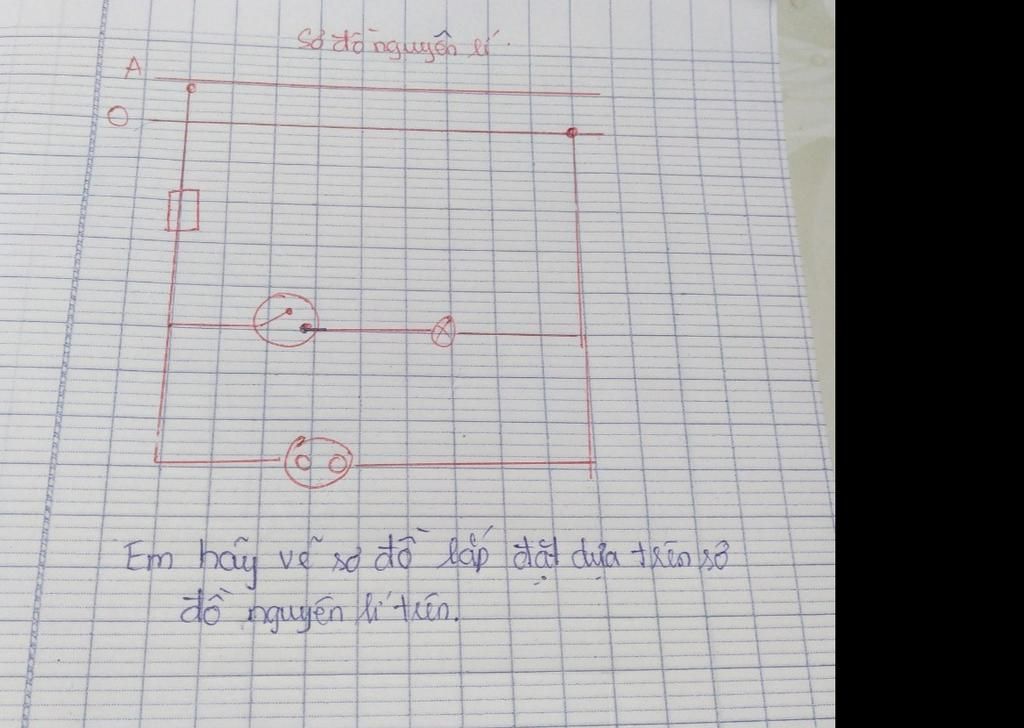 Sơ đồ nguyên lí.
A
O
Em hãy vẽ sơ đồ lắp đặt dựa trên sơ
đồ nguyên lí trên.